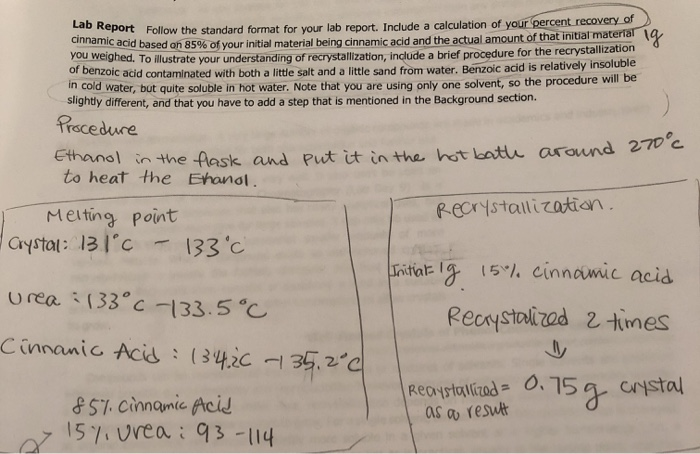 Lab Report Follow the standard format for your lab report. Include a calculation of your percent recovery of
cinnamic acid based on 85% of your initial material being cinnamic acid and the actual amount of that initial material 1g
you weighed. To illustrate your understanding of recrystallization, include a brief procedure for the recrystallization
of benzoic acid contaminated with both a little salt and a little sand from water. Benzoic acid is relatively insoluble
in cold water, but quite soluble in hot water. Note that you are using only one solvent, so the procedure will be
slightly different, and that you have to add a step that is mentioned in the Background section.
Procedure
Ethanol in the flask and put it in the hot bath around 270°C
to heat the Ehanol.
Melting point
Crystal: 131°C - 133°C
Urea : 133°C -133.5°C
Cinnanic Acid : 134.2C -135.2°C
85%. Cinnamic Acid
15%. Urea : 93 -114
Recrystallization.
Initial: 1g 15%. cinnamic acid
Recrystalized 2 times
⇓
Recrystallized = 0.75g crystal
as a result